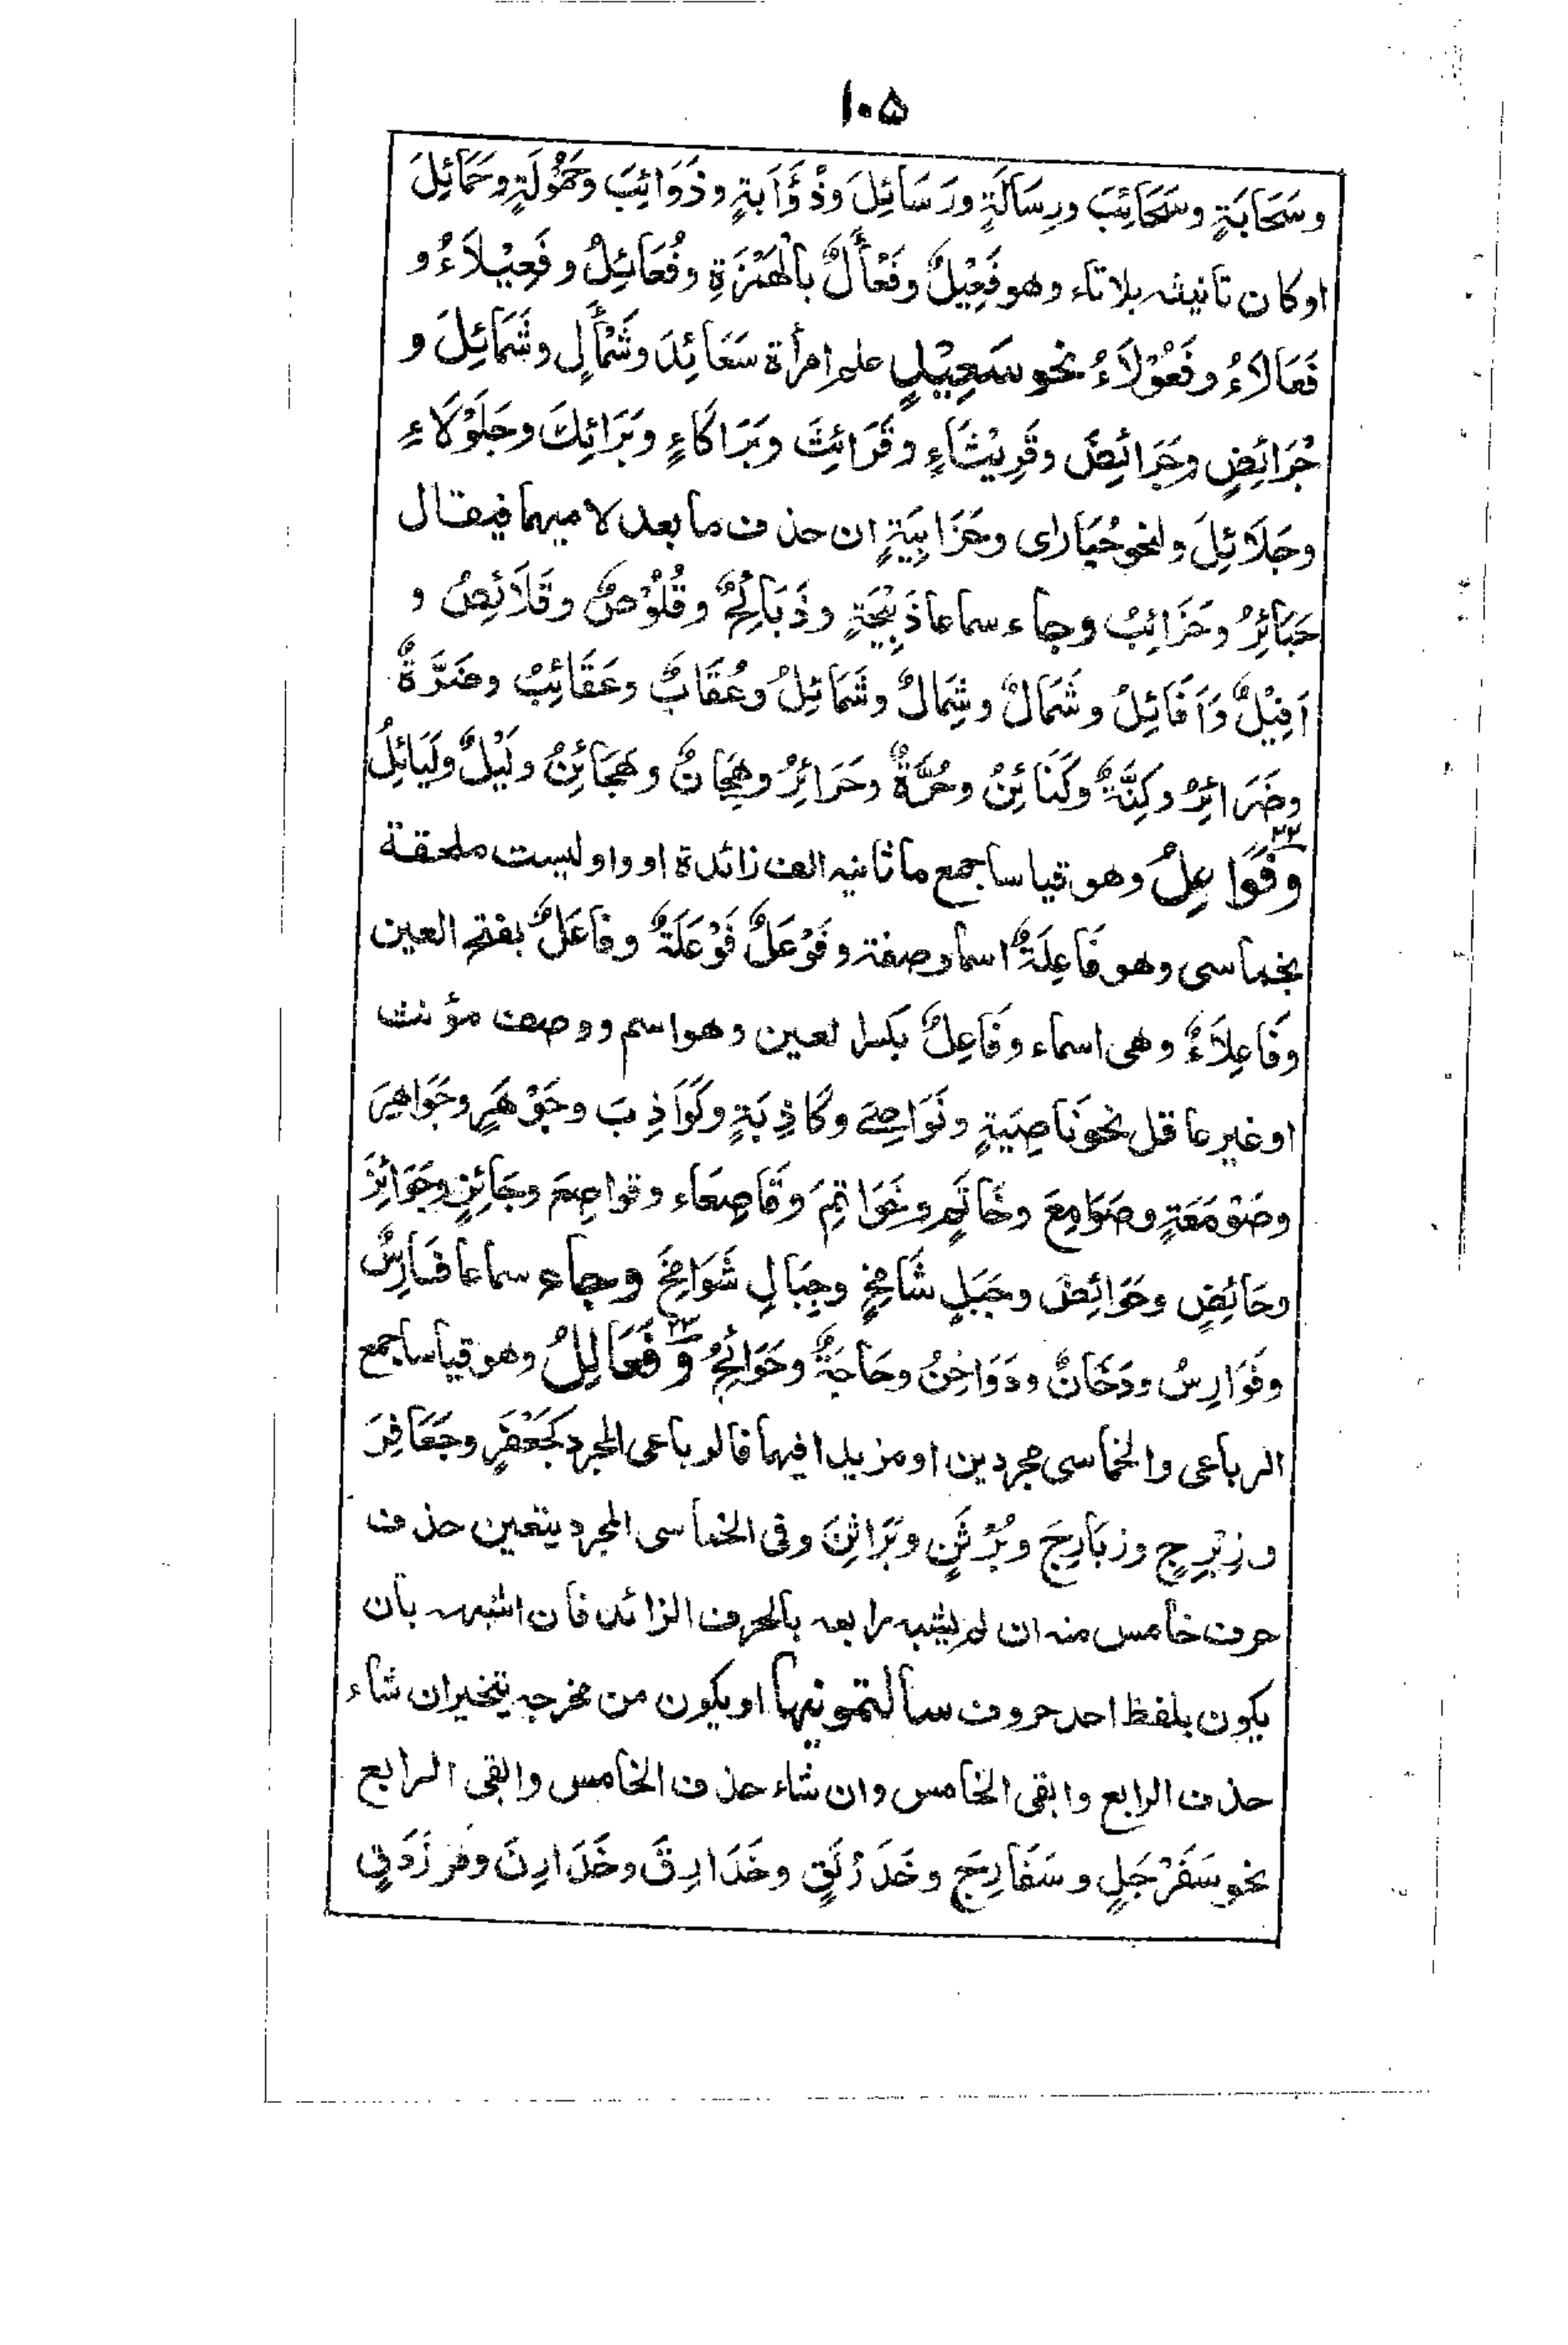 ۱۰۵
وسَحَابَةٍ وسَحَائِبَ ورِسَالَةٍ ورَسَائِلَ وذُؤَابَةٍ وذَوَائِبَ وحَمُوْلَةٍ وحَمَائِلَ
او كان تانيثه بلاتاء وهو فَعِيْلٌ وفَعْأَلٌ بالْهَمْزَةِ وفُعَائِلُ وفَعِيْلَاءُ و
فَعَالَاءُ وفَعُوْلَاءُ نحو سَعِيْدٍ علم امرأة سَعَائِدَ وشَمْأَلٍ وشَمَائِلَ و
جُرَائِضٍ وجَرَائِضَ وقَرِيْثَاءٍ وقَرَائِثَ وبَرَاكَاءٍ وبَرَائِكَ وجَلُوْلَاءٍ
وجَلَائِلَ ولنحو حُبَارٰى وحَزَابِيَةٍ ان حذف مابعد لاميهما فيقال
حَبَائِرُ وحَزَائِبُ وجاء سماعا ذَبِيْحَةٍ وذَبَائِحُ وقُلُوْصٌ وقَلَائِصُ و
اَفِيْلٌ وَاَفَائِلُ وشَمَالٌ وشِمَالٌ وشَمَائِلُ وعُقَابٌ وعَقَائِبُ وضَرَّةٌ
وضَرَائِرُ وكِنَّةٌ وكَنَائِنُ وحُرَّةٌ وحَرَائِرُ وهِجَانٌ وهَجَائِنُ ولَيْلٌ ولَيَائِلُ
وفَوَاعِلُ وهو قياسا جمع ماثانيه الف زائدة او واو ليست ملحقة
بخماسى وهو فَاعِلَةٌ اسما وصفة وفَوْعَلٌ فَوْعَلَةٌ وفَاعَلٌ بفتح العين
وفَاعِلَاءُ وهى اسماء وفَاعِلٌ بكسر العين وهو اسم ووصف مؤنث
او غير عاقل نحو نَاصِيَةٍ ونَوَاصِىَ وكَاذِبَةٍ وكَوَاذِبَ وجَوْهَرٍ وجَوَاهِرَ
وصَوْمَعَةٍ وصَوَامِعَ وخَاتَمٍ وخَوَاتِمَ وقَاصِعَاء وقواصِعَ وجَائِزٍ وجَوَائِزَ
وحَائِضٍ وحَوَائِضَ وجَبَلٍ شَامِخٍ وجِبَالٍ شَوَامِخَ وجاء سماعا فَارِسٌ
وفَوَارِسُ ودُخَانٌ ودَوَاخِنُ وحَاجَةٌ وحَوَائِجُ ۳۴ وفَعَالِلُ وهو قياسا جمع
الرباعى والخماسى مجردين او مزيدا فيهما فالرباعى المجرد كجَعْفَرٍ وجَعَافِرَ
وزِبْرِجٍ وزبَارِجَ وبُرْثَنٍ وبَرَاثِنَ وفى الخماسى المجرد يتعين حذف
حرف خامس منه ان لم يشبه رابعه بالحرف الزائد فان اشبهه بان
يكون بلفظ احد حروف سألتمونيها او يكون من مخرجه يتخير ان شاء
حذف الرابع وابقى الخامس وان شاء حذف الخامس وابقى الرابع
نحو سَفَرْجَلٍ وسَفَارِجَ وخَدَرْنَقٍ وخَدَارِقَ وخَدَارِنَ وفرزدَقٍ